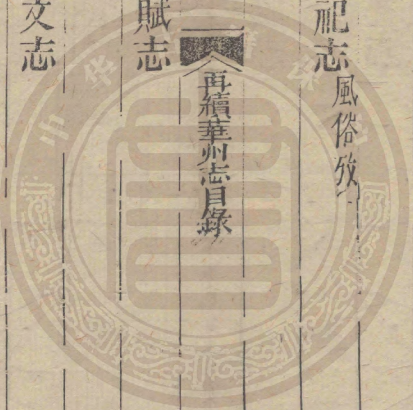 祀志
風俗攷
再續華州志目錄
賦志
文志